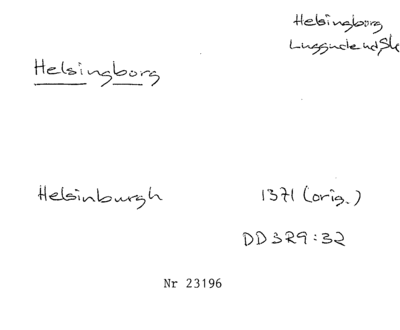 Helsingborg
Luggude hd Sk
Helsingborg
Helsinburgh 1371 (orig.)
DD 3 R 9:32
Nr 23196